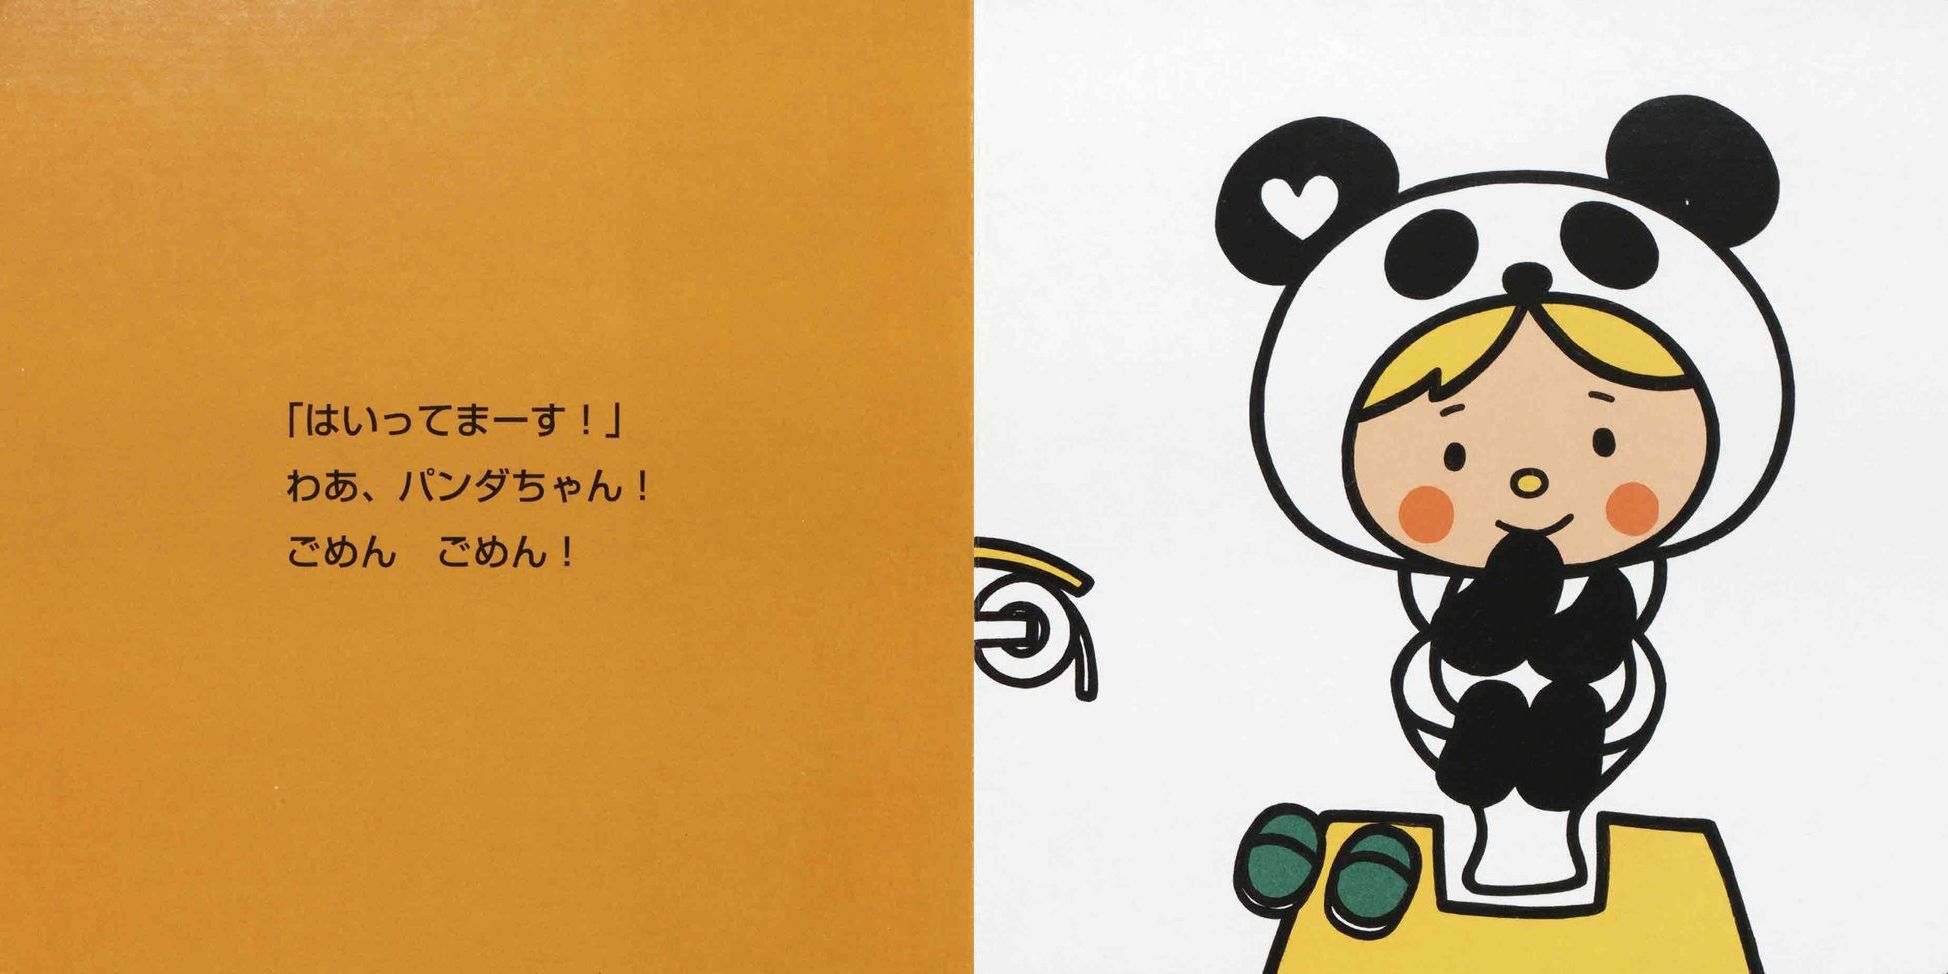 「はいってまーす！」
わあ、パンダちゃん！
ごめん　ごめん！